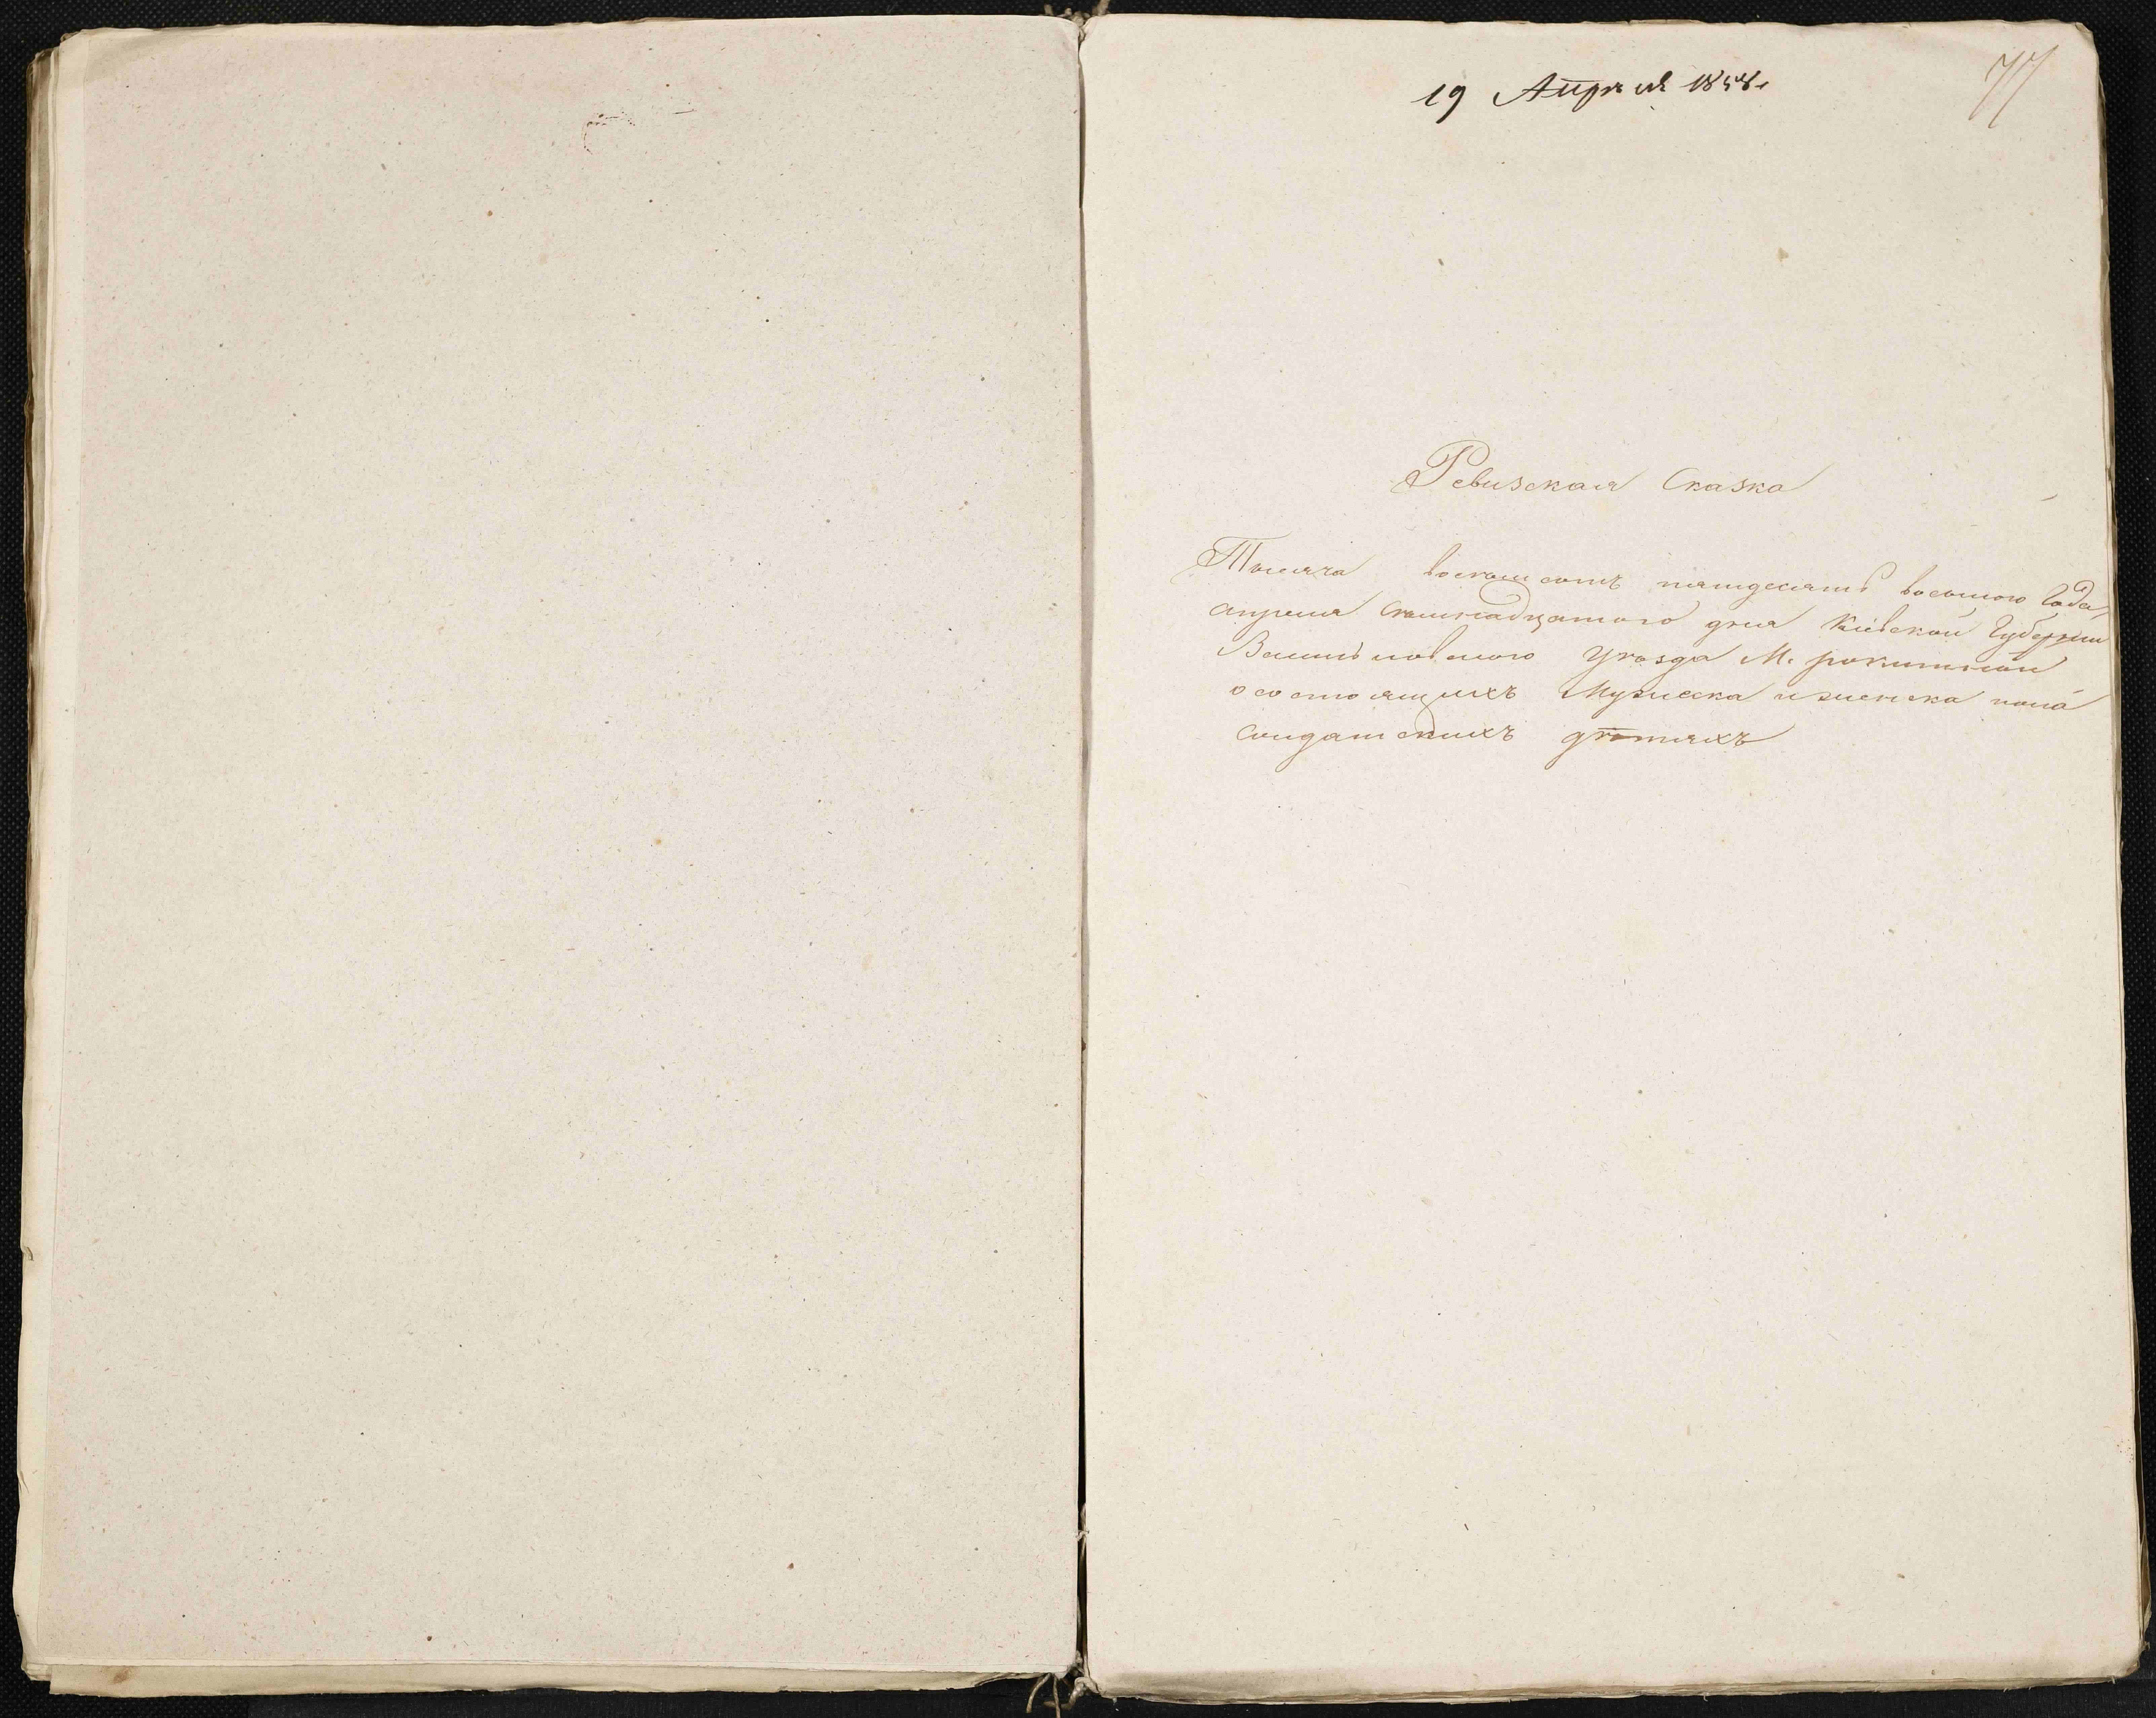 19 Апреля 1858.
77
Ревизская Сказка
Тысяча восемь сотъ пятдесятъ восьмого Года
апреля Семнадцатого дня Киевской Губернии
Васильковского Уезда М. рокитной
о состоящихъ Мужеска и женска пола
солдатскихъ детяхъ